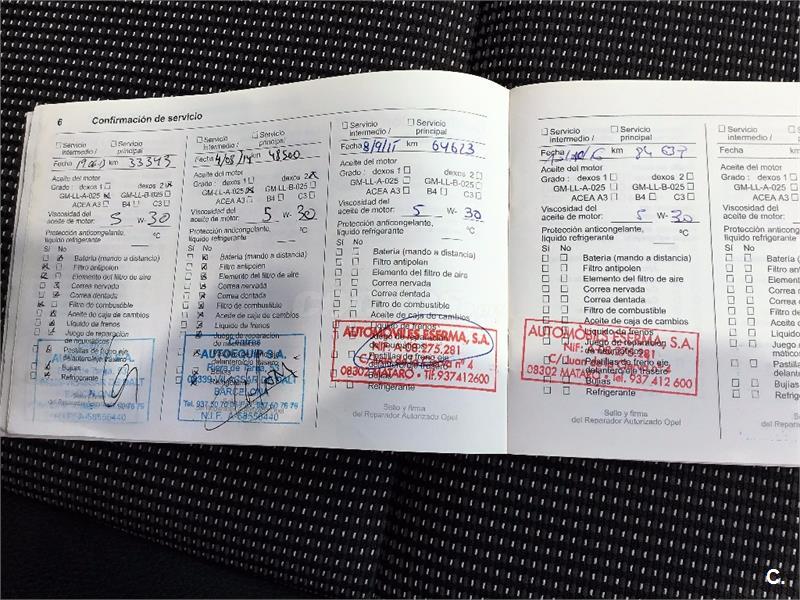 6 Confirmación de servicio
Servicio intermedio / Servicio principal
Fecha km 33343
Aceite del motor
Grado : dexos 1 dexos 2
GM-LL-A-025 GM-LL-B-025
ACEA A3 B4 C3
Viscosidad del
aceite de motor: 5 W- 30
Protección anticongelante,
líquido refrigerante °C
Sí No
Batería (mando a distancia)
Filtro antipolen
Elemento del filtro de aire
Correa nervada
Correa dentada
Filtro de combustible
Aceite de caja de cambios
Líquido de frenos
Juego de reparación
de neumáticos
Pastillas de freno eje
delantero/eje trasero
Bujías
Refrigerante
Servicio intermedio / Servicio principal
Fecha 4/08/14 km 48500
Aceite del motor
Grado : dexos 1 dexos 2
GM-LL-A-025 GM-LL-B-025
ACEA A3 B4 C3
Viscosidad del
aceite de motor: 5 W- 30
Protección anticongelante,
líquido refrigerante °C
Sí No
Batería (mando a distancia)
Filtro antipolen
Elemento del filtro de aire
Correa nervada
Correa dentada
Filtro de combustible
Aceite de caja de cambios
Líquido de frenos
Juego de reparación
AUTOEQUIP S.A.
BARCELONA
N.I.F. A-58550440
Servicio intermedio / Servicio principal
Fecha 8/9/15 km 64623
Aceite del motor
Grado : dexos 1 dexos 2
GM-LL-A-025 GM-LL-B-025
ACEA A3 B4 C3
Viscosidad del
aceite de motor: 5 W- 30
Protección anticongelante,
líquido refrigerante °C
Sí No
Batería (mando a distancia)
Filtro antipolen
Elemento del filtro de aire
Correa nervada
Correa dentada
Filtro de combustible
Aceite de caja de cambios
Líquido de frenos
AUTOMÓVILES ESERMA, S.A.
NIF. A-08.275.281
Pastillas de freno eje
08302 MATARÓ • Tlf. 937412600
Refrigerante
Sello y firma
del Reparador Autorizado Opel
Servicio intermedio / Servicio principal
Fecha km
Aceite del motor
Grado : dexos 1 dexos 2
GM-LL-A-025 GM-LL-B-025
ACEA A3 B4 C3
Viscosidad del
aceite de motor: 5 W- 30
Protección anticongelante,
líquido refrigerante °C
Sí No
Batería (mando a distancia)
Filtro antipolen
Elemento del filtro de aire
Correa nervada
Correa dentada
Filtro de combustible
Aceite de caja de cambios
Líquido de frenos
AUTOMÓVILES ESERMA, S.A.
Juego de reparación
Pastillas de freno eje
delantero/eje trasero
08302 MATARÓ • Tel. 937 412 600
Bujías
Refrigerante
Sello y firma
del Reparador Autorizado Opel
Servicio
intermedio /
Fecha
Aceite del motor
Grado : dexos
GM-LL-A
ACE
Viscosidad del
aceite de motor:
Protección anti
líquido refrigera
Sí No
Batería
Filtro
Elem
Corre
Corre
Filtro
Aceite
Líquido
Juego
Pastillas
delante
Bujías
Refrig
C.